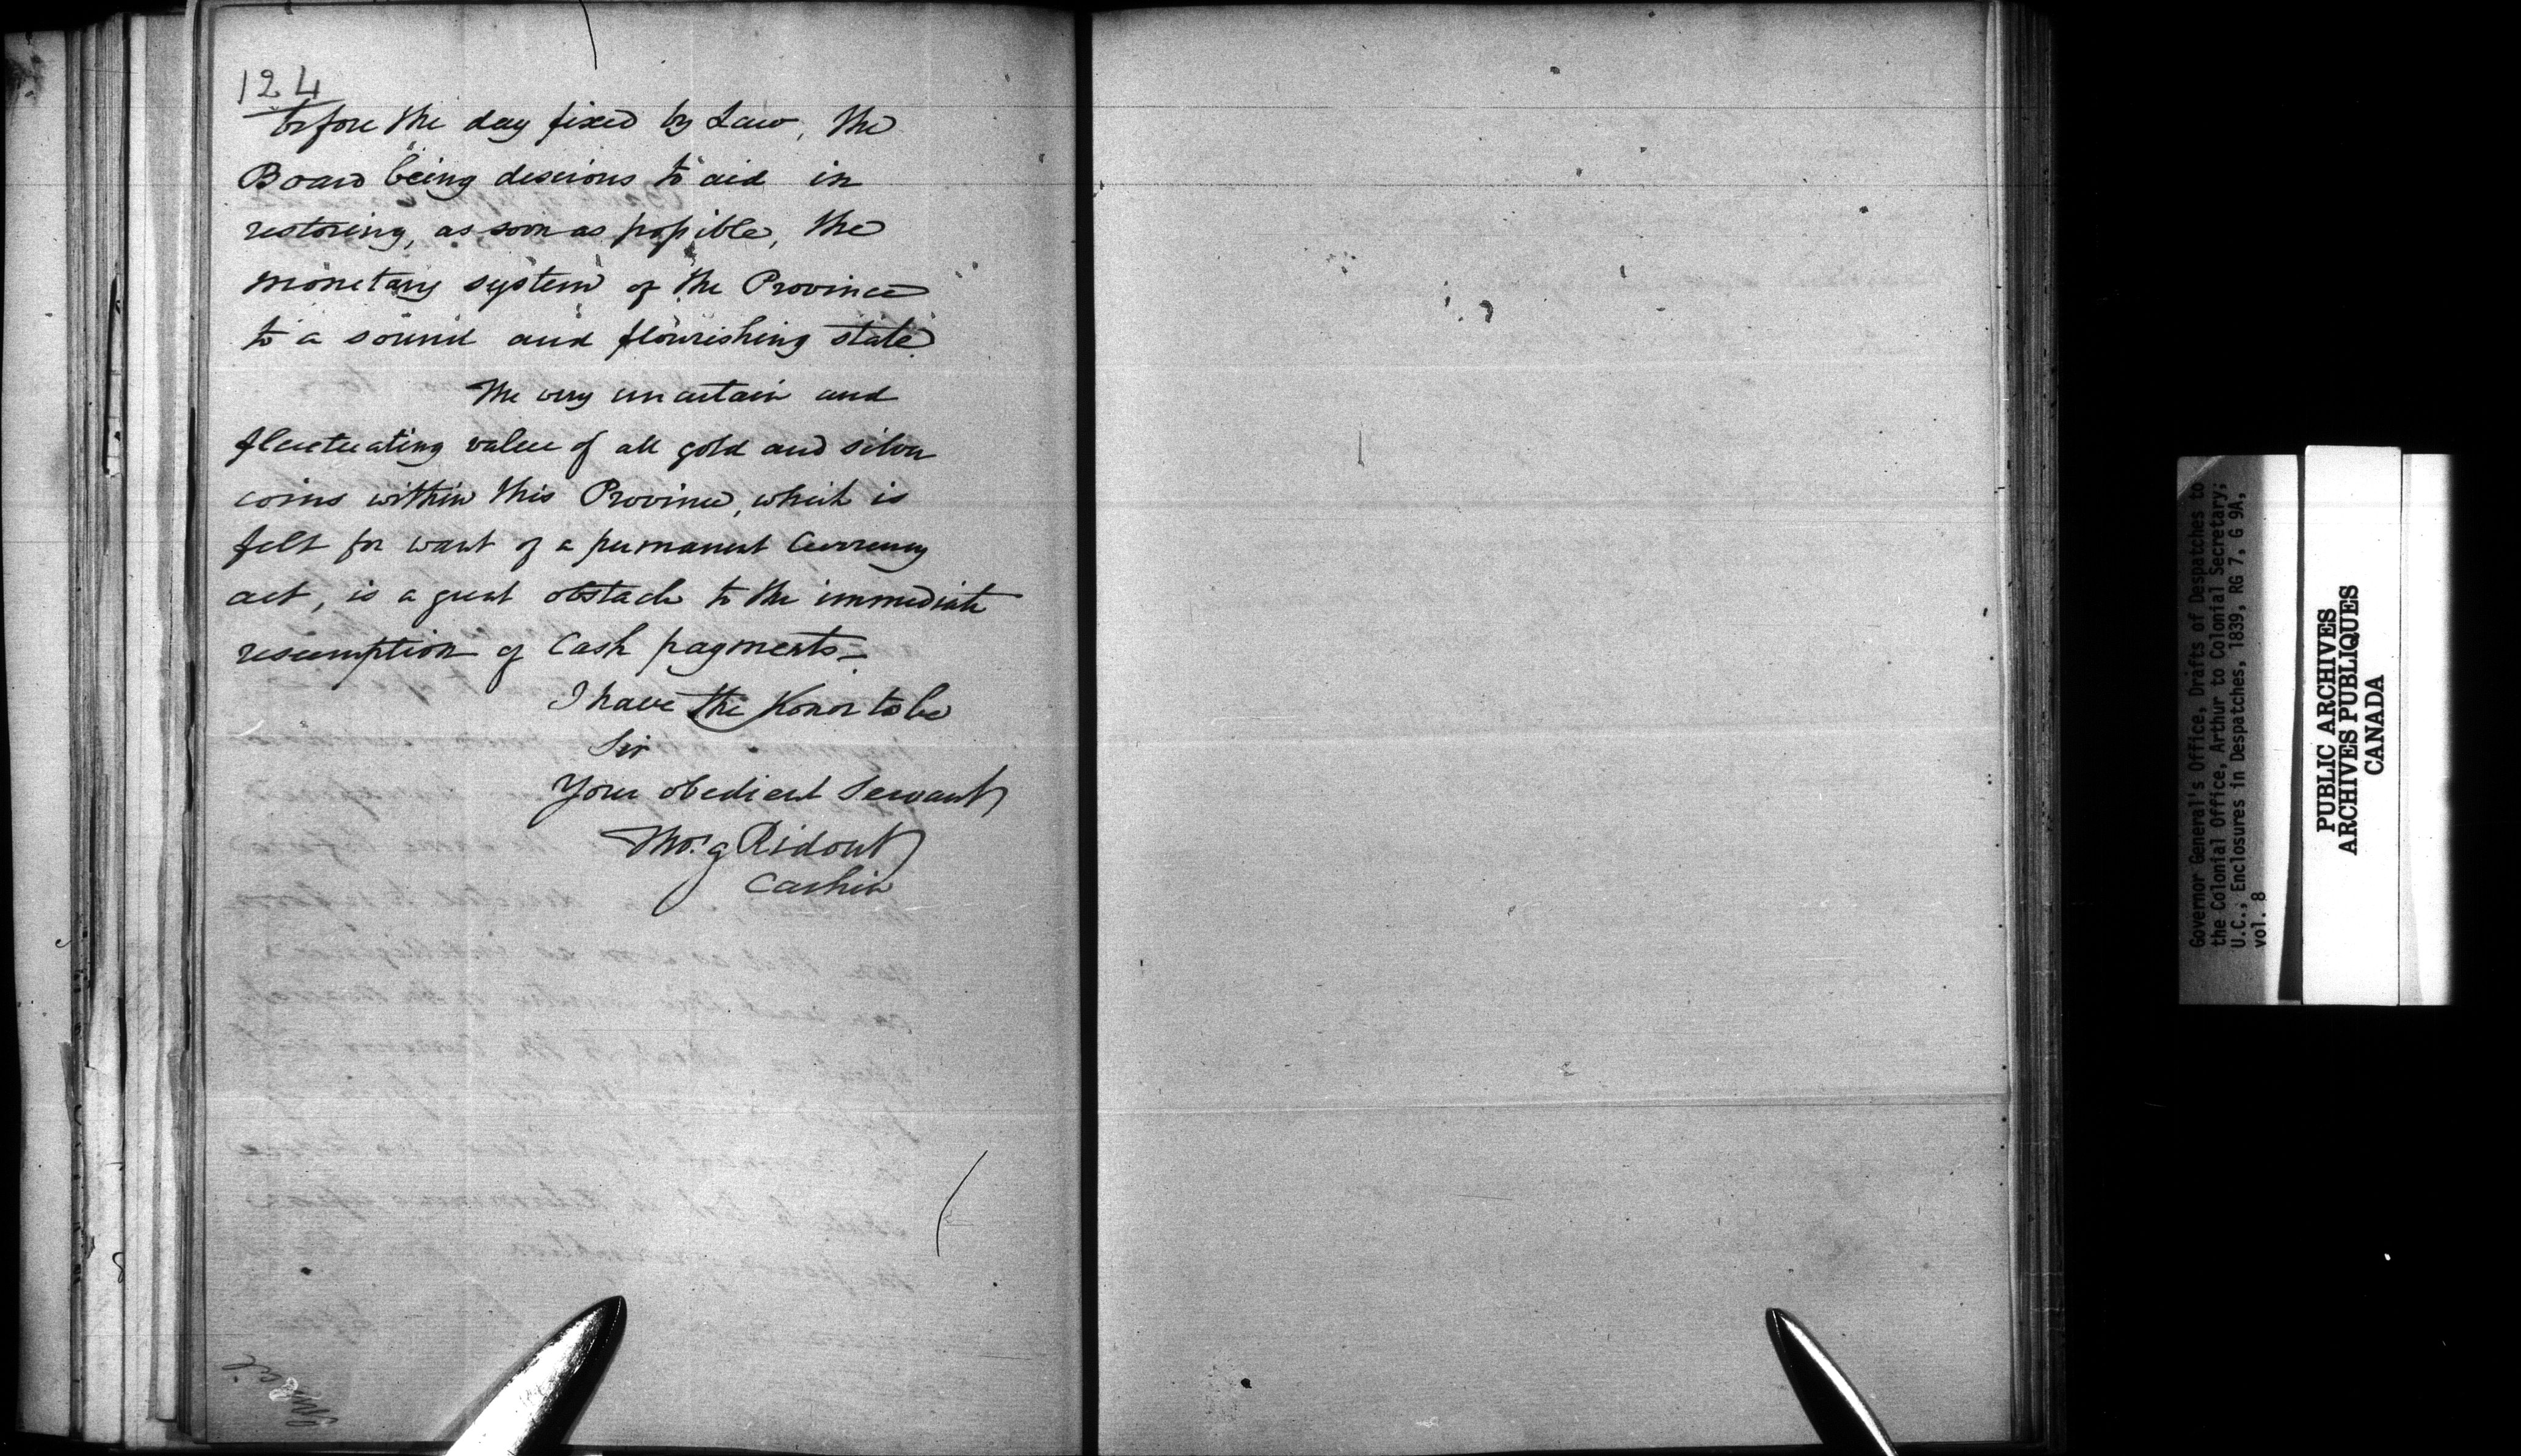 124
before the day fixed by Law, the
Board being desirous to aid in
restoring, as soon as possible, the
monetary system of the Province
to a sound and flourishing state.
The very uncertain and
fluctuating value of all gold and silver
coins within this Province, which is
felt for want of a permanent Currency
act, is a great obstacle to the immediate
resumption of Cash payments_
I have the Honor to be
Sir
Your obedient Servant
Tho.s G Ridout
Cashier
Governor General's Office, Drafts of Despatches to
the Colonial Office, Arthur to Colonial Secretary;
U.C., Enclosures in Despatches, 1839, RG 7, G 9A,
vol. 8
PUBLIC ARCHIVES
ARCHIVES PUBLIQUES
CANADA